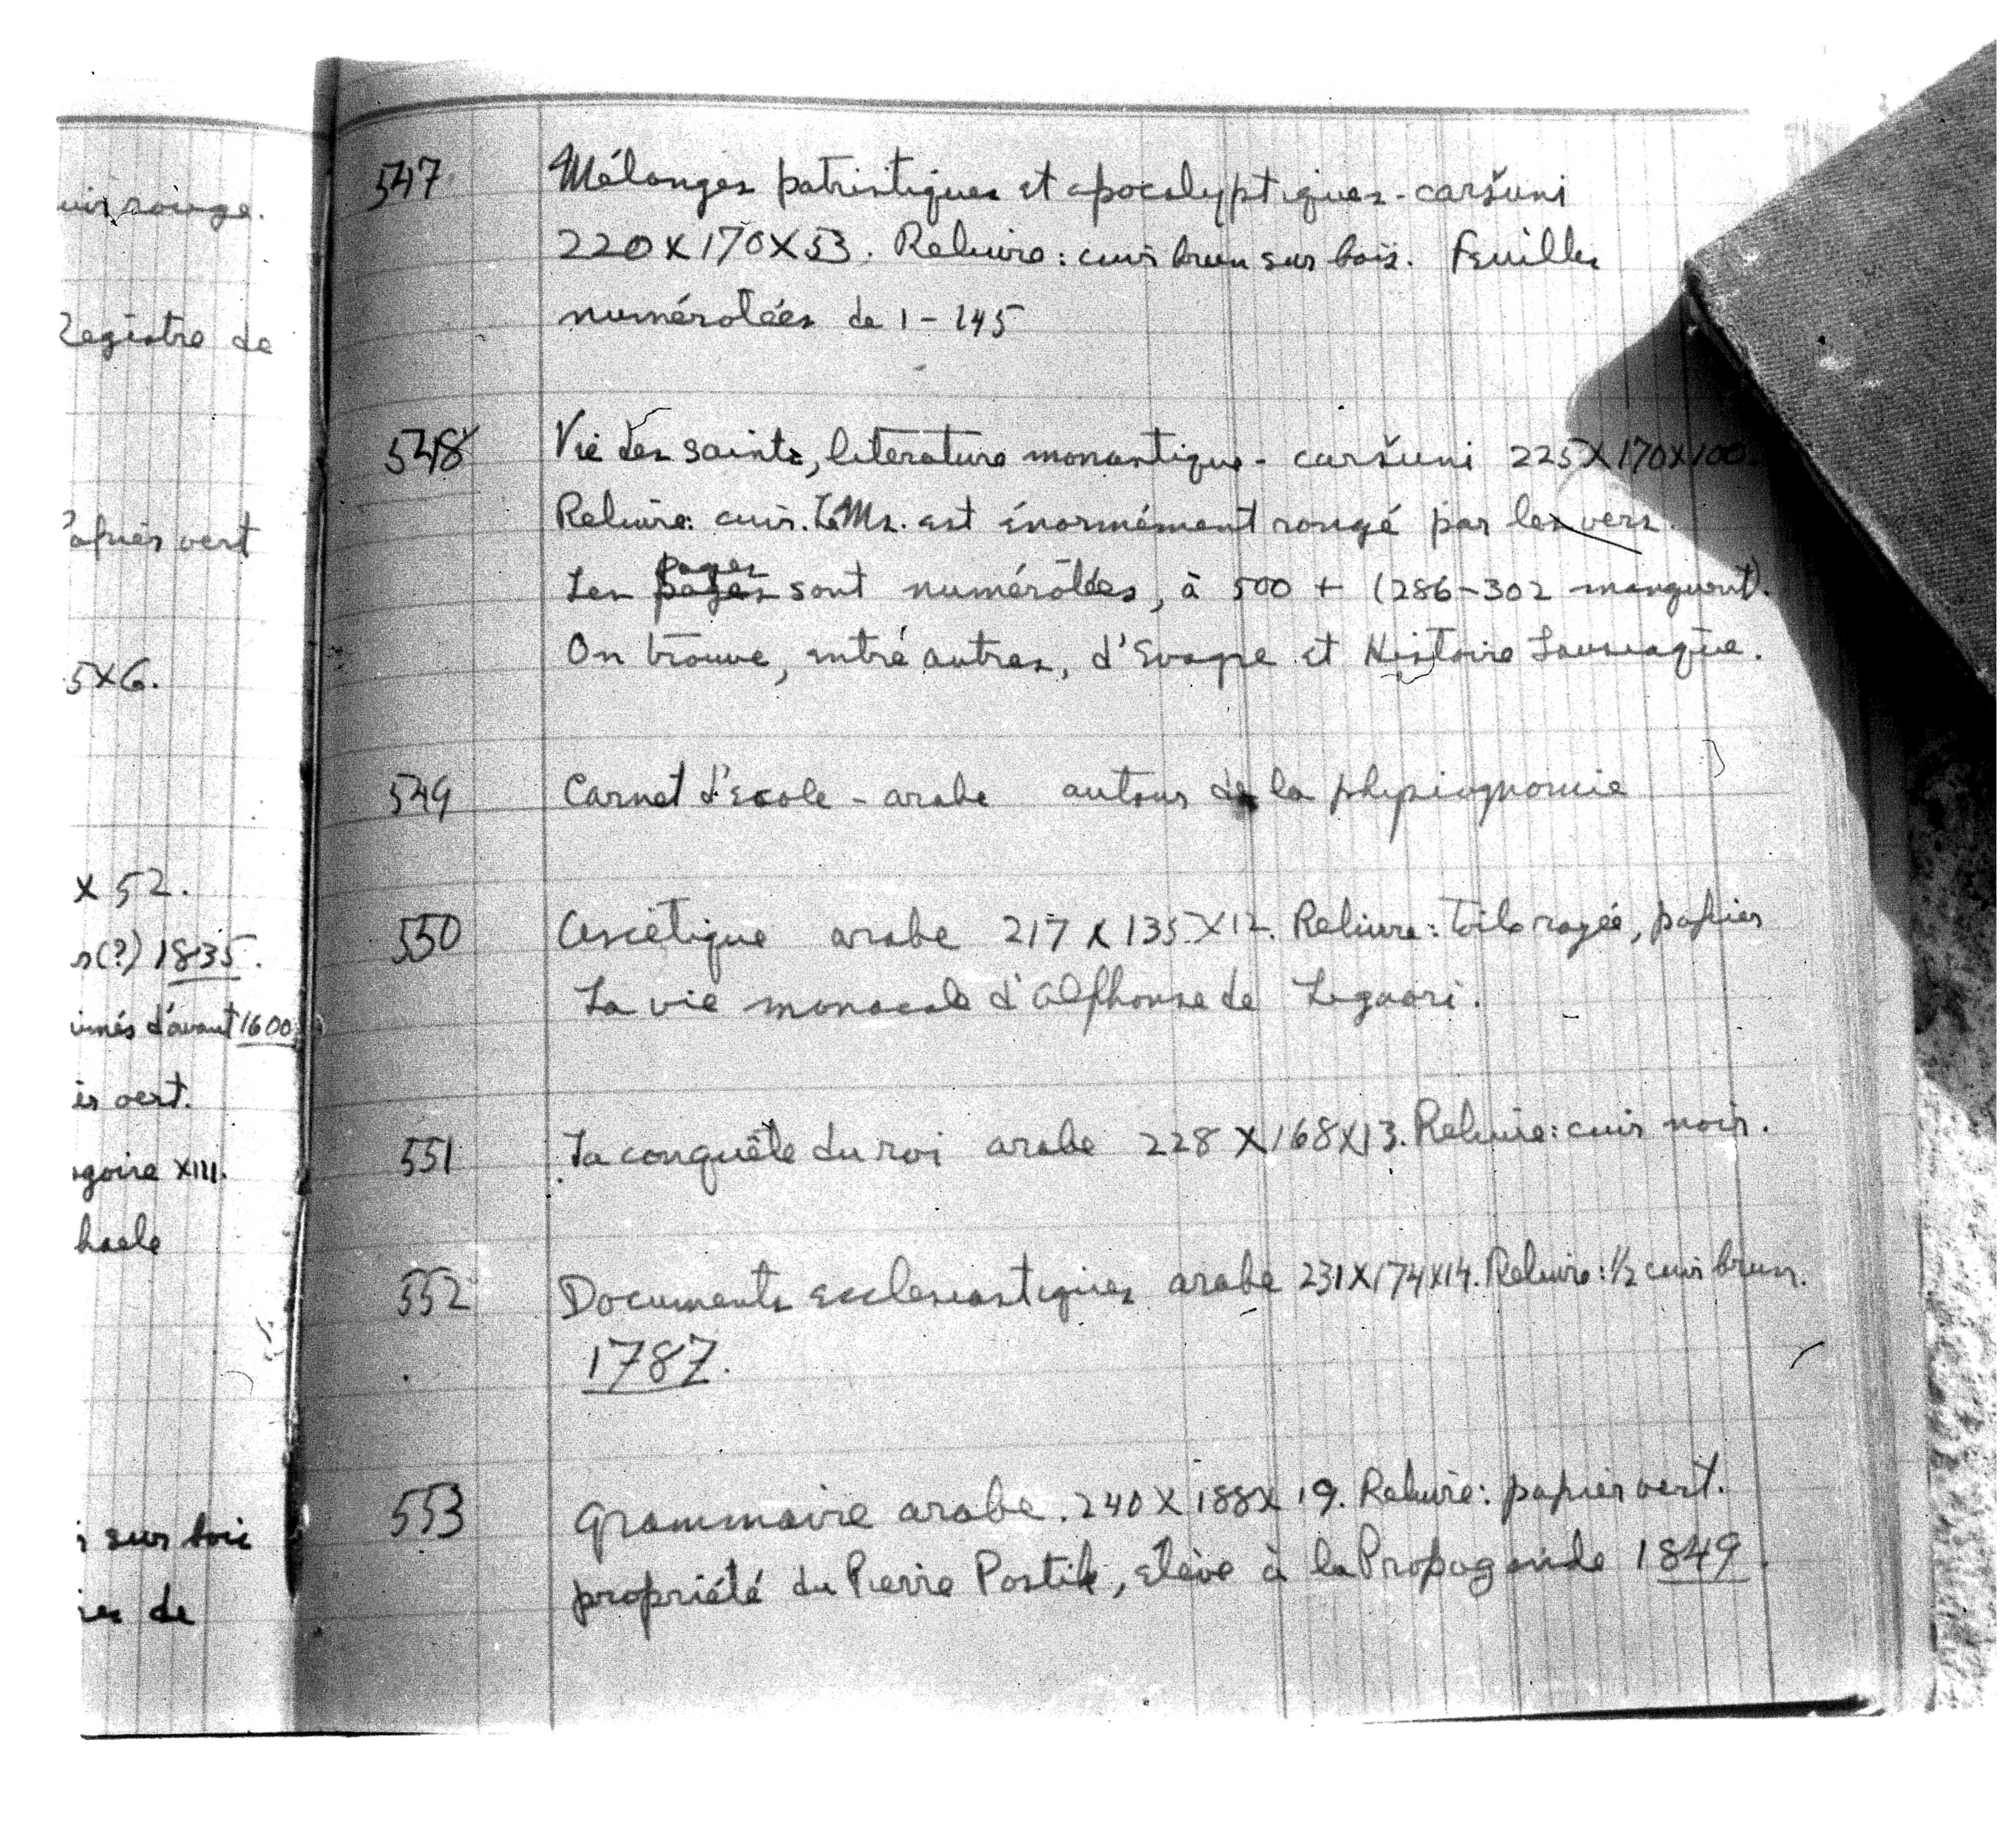 uir rouge.
Registre de
papier vert
5X6.
X 52.
s(?) 1835.
imés d'avant 1600
er vert.
goire XIII.
haele
sur boi
de
547 Mélanges patristiques et apocalyptiques - caršuni
220 X 170 X 53. Reliure: cuir brun sur bois. Feuilles
numérotées de 1-145
548 Vie des saints, literature monastique - caršuni 225X170X100.
Reliure: cuir. Le Ms. est énormément rongé par les vers.
Les pages sont numérotées, à 500 + (286-302 manquent).
On trouve, entre autres, d'Evagre et Histoire Lausiaque.
549 Carnet d'école - arabe autour de la physiognomie
550 Ascétique arabe 217 X 135 X 12. Reliure: toile rayée, papier
La vie monacale d'Alphonse de Liguori.
551 La conquête du roi arabe 228 X 168 X 13. Reliure: cuir noir.
552 Documents ecclesiastiques arabe 231X174X14. Reliure: 1/2 cuir brun.
1787.
553 Grammaire arabe. 240 X 188 X 19. Reliure: papier vert.
propriété du Pierre Postik, élève à la Propagande 1849.